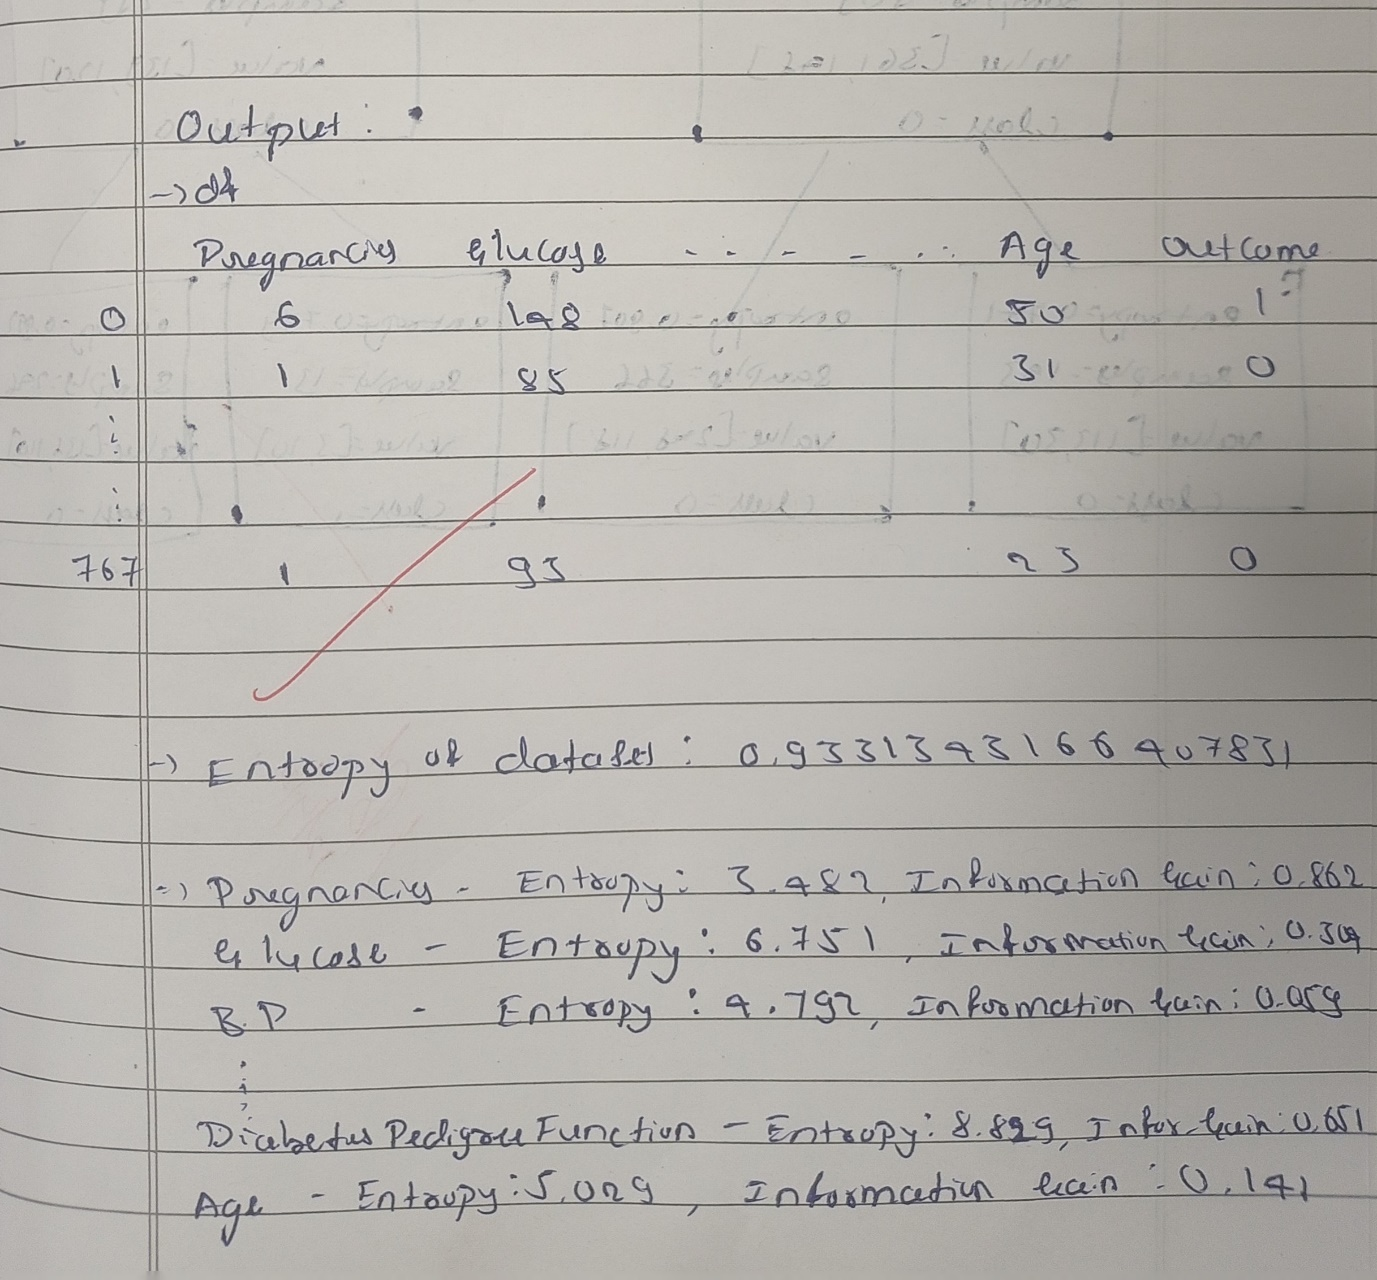 Output :
→ df
Pregnancies Glucose - - - - - - Age Outcome
0 6 148 50 1
1 1 85 31 0
:
:
767 1 93 23 0
→ Entropy of dataset : 0.9331343166407831
→ Pregnancies - Entropy : 3.482, Information Gain : 0.862
Glucose - Entropy : 6.751, Information Gain : 0.304
B.P - Entropy : 4.792, Information Gain : 0.059
:
Diabetes Pedigree Function - Entropy : 8.829, Infor Gain : 0.651
Age - Entropy : 5.029, Information Gain : 0.141